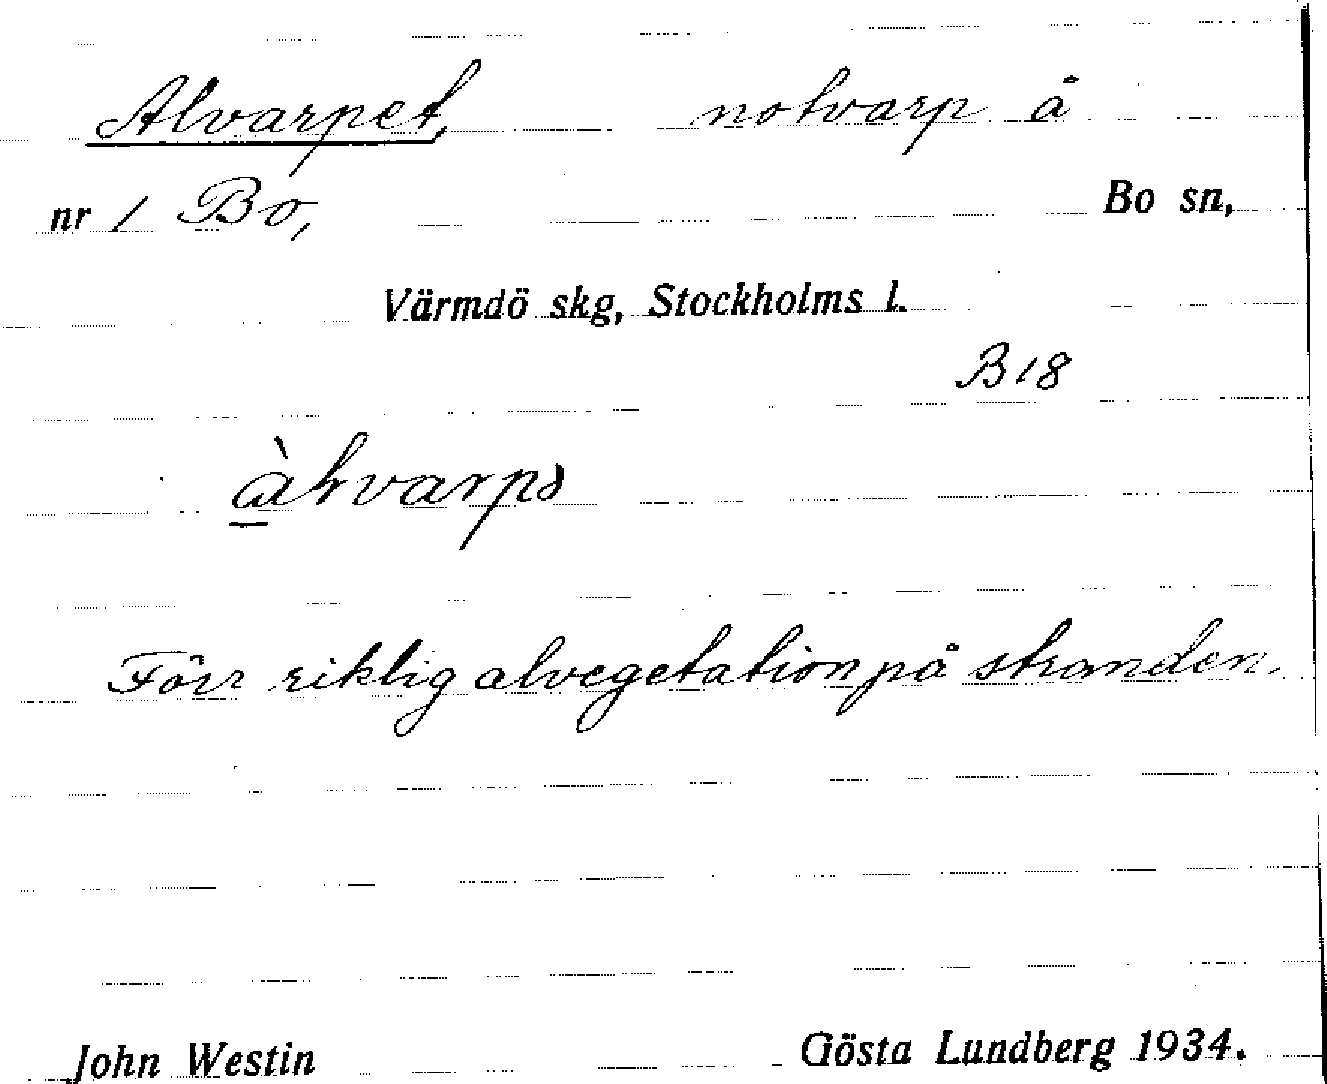 Alvarpet, notvarp å
nr 1 Bo, Bo sn,
Värmdö skg, Stockholms l.
B 18
Förr riklig alvegetation på stranden.
John Westin Gösta Lundberg 1934.